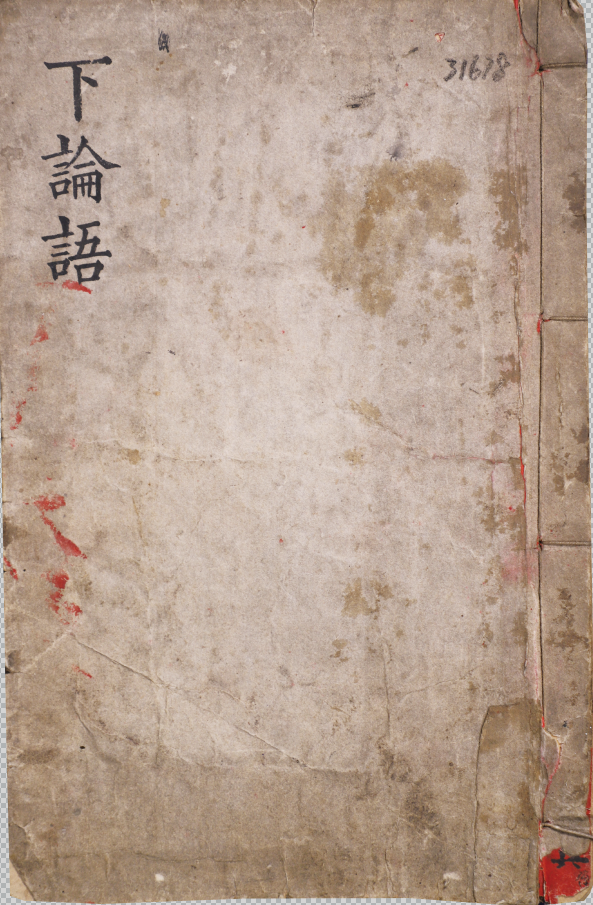 下論語
31678